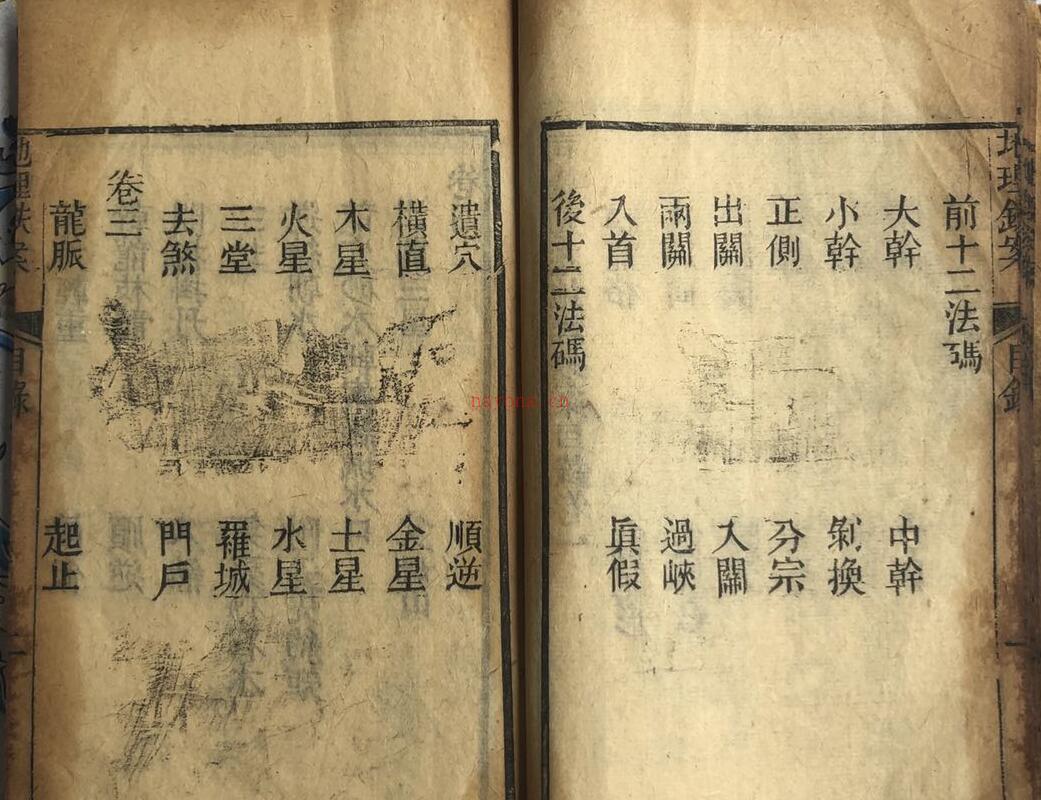 地理鉄案 目錄
前十二法碼
大幹 中幹
小幹 剝換
正側 分宗
出關 入關
兩關 過峽
入首 眞假
後十二法碼
遺穴 順逆
橫直 金星
木星 土星
火星 水星
三堂 羅城
去煞 門戶
卷三
龍脈 起止
目錄
nayona.cn